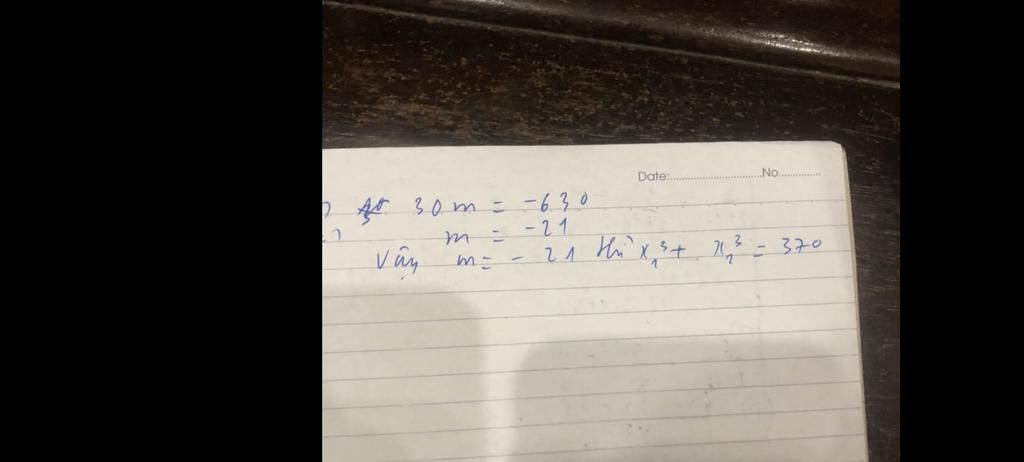 Date:..............................No.............
30 m = -630
m = -21
Vậy m = - 21 thì x₁³ + x₂³ = 370